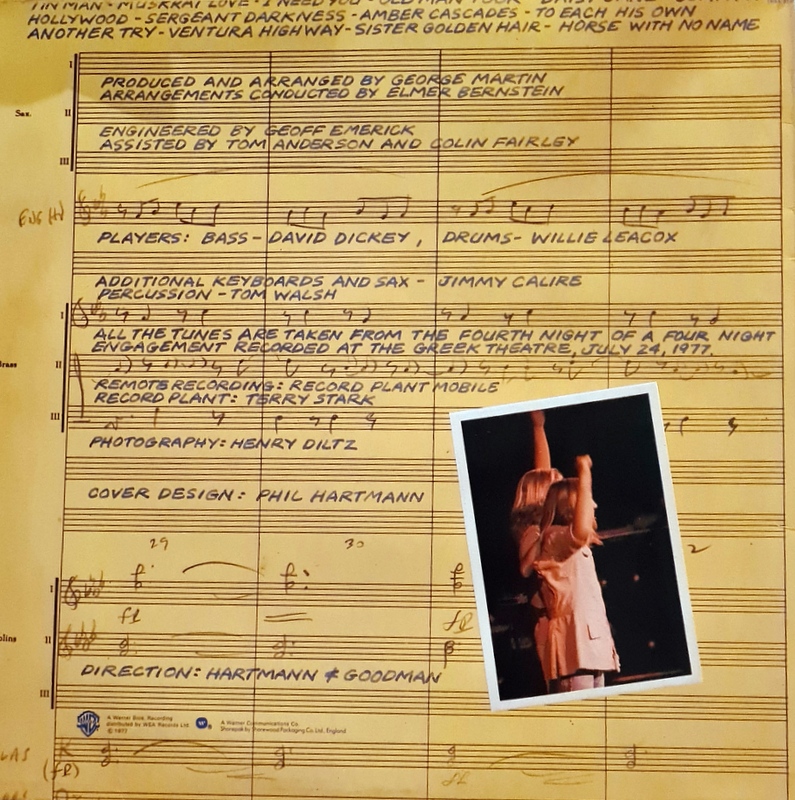 TIN MAN - MUSKRAT LOVE - I NEED YOU - OLD MAN TOOK - DAISY JANE -
HOLLYWOOD - SERGEANT DARKNESS - AMBER CASCADES - TO EACH HIS OWN
ANOTHER TRY - VENTURA HIGHWAY - SISTER GOLDEN HAIR - HORSE WITH NO NAME
I
PRODUCED AND ARRANGED BY GEORGE MARTIN
ARRANGEMENTS CONDUCTED BY ELMER BERNSTEIN
Sax.
II
ENGINEERED BY GEOFF EMERICK
ASSISTED BY TOM ANDERSON AND COLIN FAIRLEY
III
ENG (H)
PLAYERS: BASS - DAVID DICKEY, DRUMS - WILLIE LEACOX
ADDITIONAL KEYBOARDS AND SAX - JIMMY CALIRE
PERCUSSION - TOM WALSH
I
ALL THE TUNES ARE TAKEN FROM THE FOURTH NIGHT OF A FOUR NIGHT
ENGAGEMENT RECORDED AT THE GREEK THEATRE, JULY 24, 1977.
Brass
II
REMOTE RECORDING: RECORD PLANT MOBILE
RECORD PLANT: TERRY STARK
III
PHOTOGRAPHY: HENRY DILTZ
COVER DESIGN: PHIL HARTMANN
29 30 2
I
II
DIRECTION: HARTMANN & GOODMAN
III
A Warner Bros. Recording
distributed by WEA Records Ltd.
© 1977
A Warner Communications Co.
Shorepak by Shorewood Packaging Co. Ltd., England